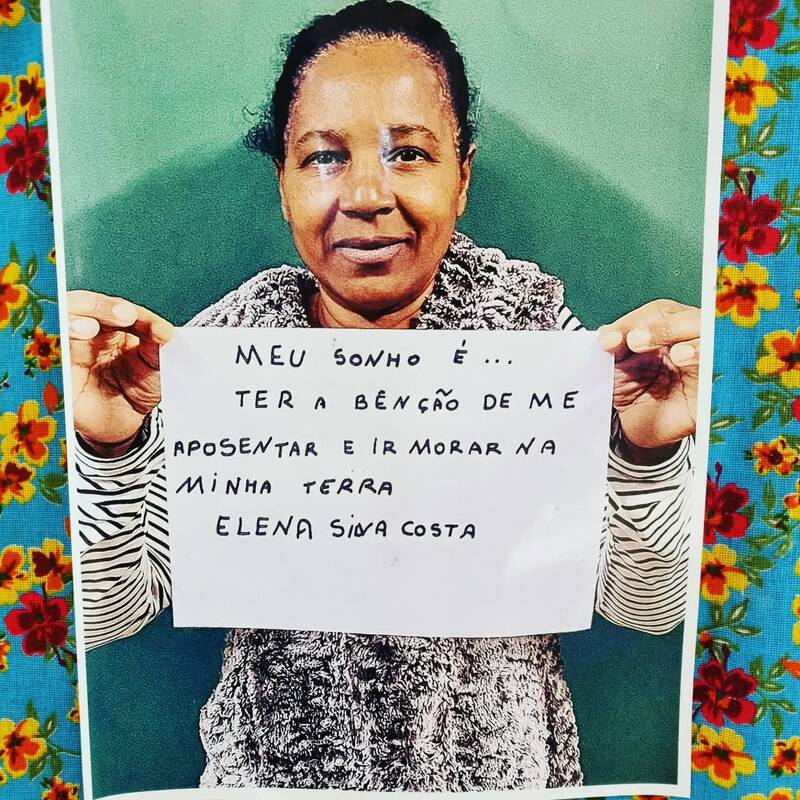 MEU SONHO É...
TER A BÊNÇÃO DE ME
APOSENTAR E IR MORAR NA
MINHA TERRA
ELENA SILVA COSTA